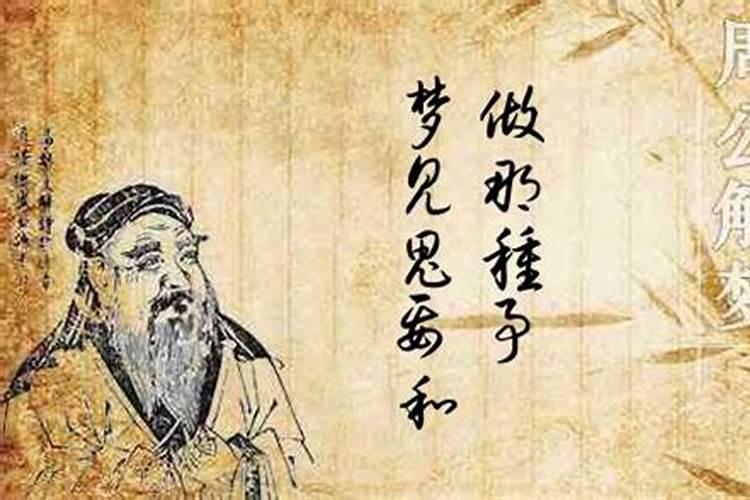 梦见鬼要和
做那種事
周公解梦